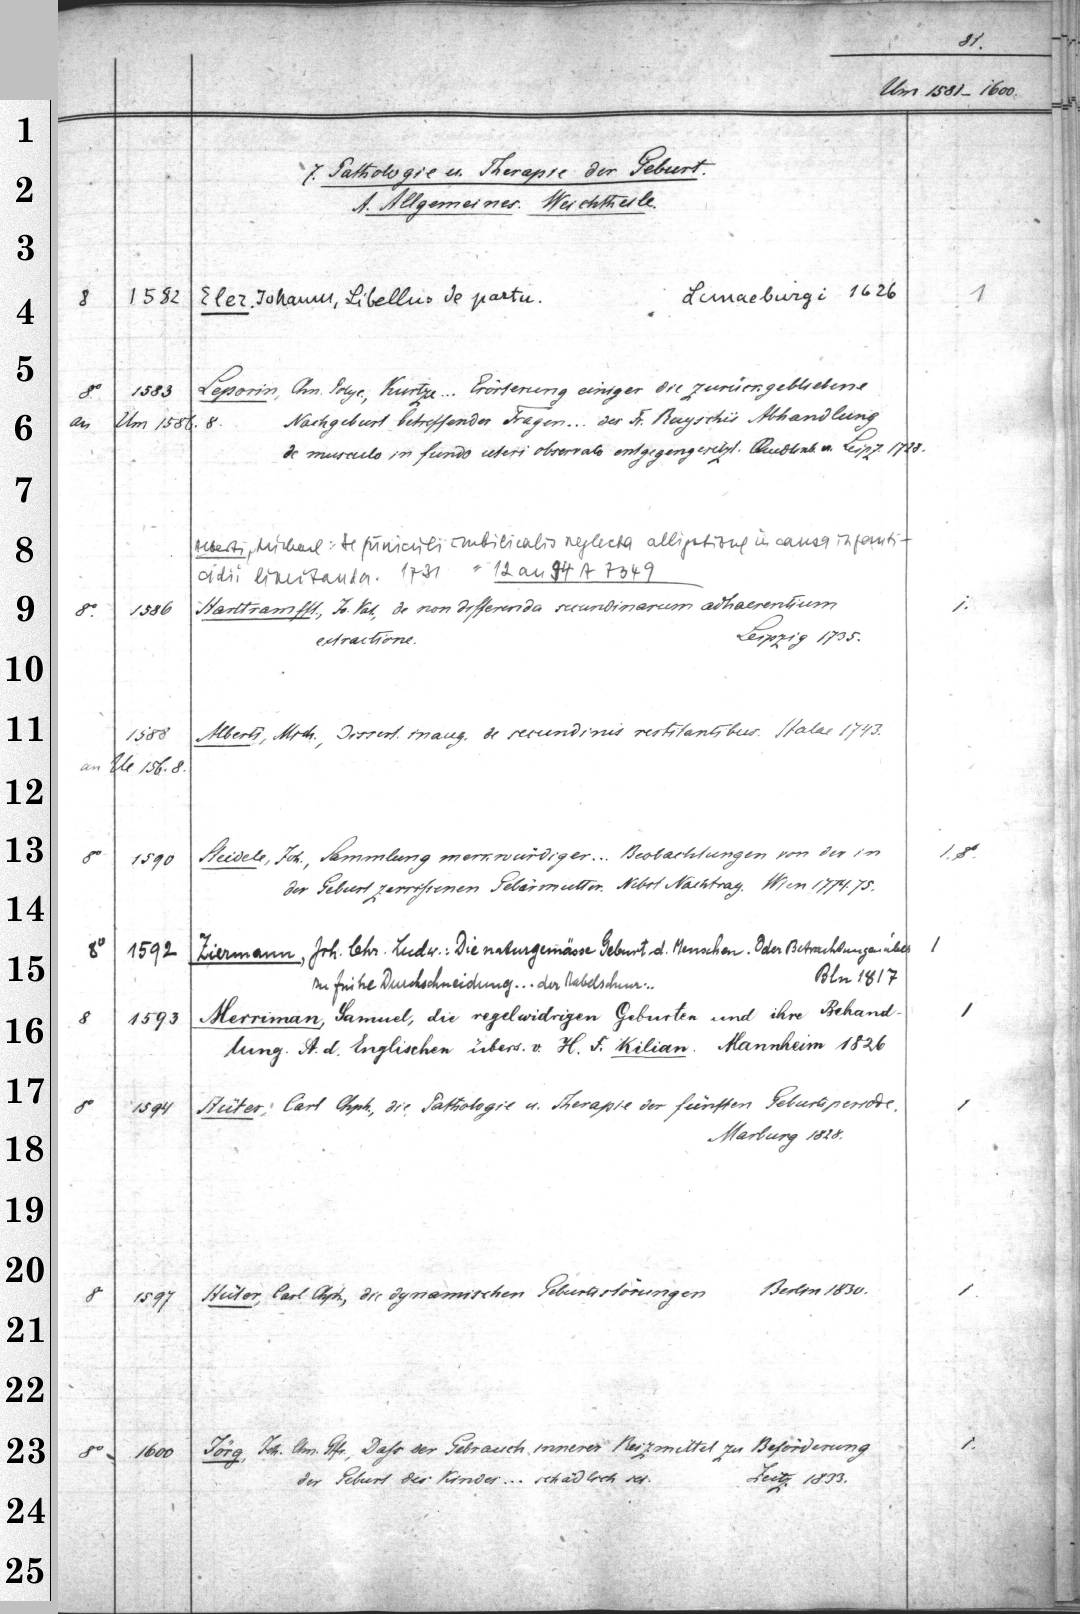 81.
Um 1581-1600.
7. Pathologie u. Therapie der Geburt.
A. Allgemeines. Weichtheile.
8 1582 Eler, Johann, Libellus de partu. Lunaeburgi 1626 1
8° 1583 Leporin, Chn. Polyc., Kurtze... Erörterung einiger die zurückgebliebene
an Um 1586. 8. Nachgeburt betreffender Fragen... des Fr. Ruyschii Abhandlung
de musculo in fundo uteri observato entgegengesetzt. Quedlinb. u. Leipz. 1728.
Alberti, Michael: de funiculi umbilicalis neglecta alligatione in causa infanti-
cidii limitanda. 1731 = 12 an 94 A 7349
8°. 1586 Hartramfft, Jo. Val., de non differenda secundinarum adhaerentium 1.
extractione. Leipzig 1735.
1588 Alberti, Mich., Dissert. inaug. de secundinis restitantibus. Halae 1743.
an Ue 156. 8.
8° 1590 Steidele, Joh., Sammlung merkwürdiger... Beobachtungen von der in 1.8°.
der Geburt zerrissenen Gebärmutter. Nebst Nachtrag. Wien 1774.75.
8° 1592 Ziermann, Joh. Chr. Ludw.: Die naturgemässe Geburt d. Menschen. Oder Betrachtungen über 1
zu frühe Durchschneidung... der Nabelschnur... Bln 1817
8 1593 Merriman, Samuel, die regelwidrigen Geburten und ihre Behand- 1
lung. A. d. Englischen übers. v. H. F. Kilian. Mannheim 1826
8° 1594 Hüter, Carl Chph., die Pathologie u. Therapie der fünften Geburtsperiode. 1
Marburg 1828.
8 1597 Hüter, Carl Chph., die dynamischen Geburtsstörungen Berlin 1830. 1.
8° 1600 Jörg, Joh. Chn. Gfr., Dass der Gebrauch innerer Reizmittel zu Beförderung 1.
der Geburt des Kindes... schädlich sei. Zeitz 1833.
1
2
3
4
5
6
7
8
9
10
11
12
13
14
15
16
17
18
19
20
21
22
23
24
25